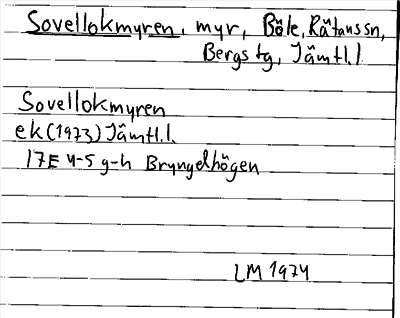 Sovellokmyren, myr, Böle, Rätanssn,
Bergs tg, Jämtl.l
Sovellokmyren
ek (1973) Jämtl.l.
17E 4-5 g-h Bryngelhögen
LM 1974